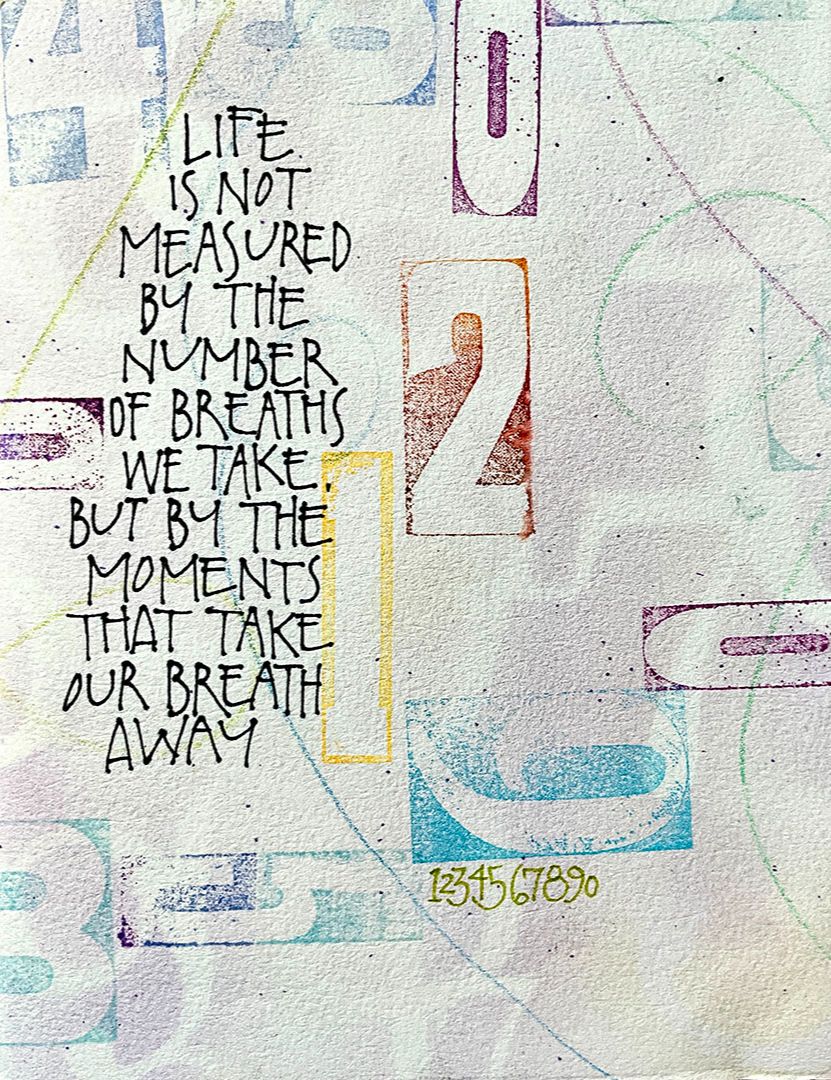 4
0
LIFE
IS NOT
MEASURED
BY THE
NUMBER
OF BREATHS
WE TAKE,
BUT BY THE
MOMENTS
THAT TAKE
OUR BREATH
AWAY
2
1
1234567890
8